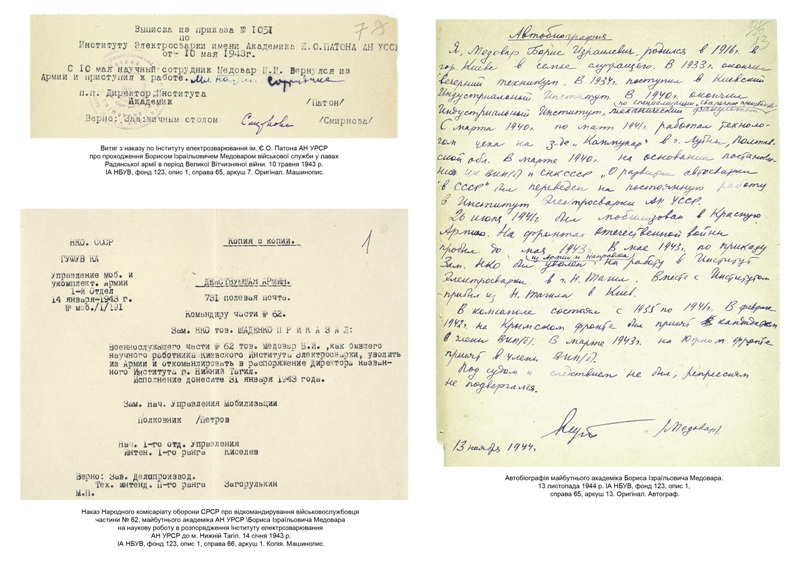 7
Выписка из приказа № 1051
по
Институту Электросварки имени Академика Е.О.ПАТОНА АН УССР
от 10 мая 1943г.
С 10 мая научный сотрудник Медовар Б.И. Вернулся из
Армии и приступил к работе.
п.п. Директор Института
Академик /Патон/
Верно: Зав.личным столом /Смирнова/
Витяг з наказу по Інституту електрозварювання ім. Є.О. Патона АН УРСР
про проходження Борисом Ізраїльовичем Медоваром військової служби у лавах
Радянської армії в період Великої Вітчизняної війни. 10 травня 1943 р.
ІА НБУВ, фонд 123, опис 1, справа 65, аркуш 7. Оригінал. Машинопис.
НКО. СССР
Копия с копии.
1
ГУФУВ КА
Управление моб. и
укомплект. Армии
1-й отдел
14 января-1943 г.
№ моб./1/191
ДЕЙСТВУЮЩАЯ АРМИЯ.
731 полевая почта.
Командиру части № 62.
Зам. НКО тов. ЩАДЕНКО П Р И К А З А Л:
Военнослужащего части № 62 тов. Медовар Б.И. ,как бывшего
научного работника Киевского Института Електросварки, уволить
из Армии и откомандировать в распоряжение директора назван-
ного Института г. Нижний Тагил.
Исполнение донесите 31 января 1943 года.
Зам. Нач. Управления Мобилизации
Полковник /Петров
Нач. 1-го отд. Управления
Интен. 1-го ранга Киселев
Верно: Зав. Делопроизвод.
Тех. интенд. П-го ранга Загорулькин
М.П.
Наказ Народного комісаріату оборони СРСР про відкомандирування військовослужбовця
частини № 62, майбутнього академіка АН УРСР \Бориса Ізраїльовича Медовара
на наукову роботу в розпорядження Інституту електрозварювання
АН УРСР до м. Нижній Тагіл. 14 січня 1943 р.
ІА НБУВ, фонд 123, опис 1, справа 66, аркуш 1. Копія. Машинопис.
13
Автобиография
Я, Медовар Борис Израилевич, родился в 1916г. в
гор. Киеве в семье служащего. В 1933г. окончил
Вечерний техникум. В 1934г. поступил в Киевский
Индустриальный Институт. В 1940г. окончил
по специализации „сварочное производство"
Индустриальный Институт, механический факультет
С марта 1940г. по март 1941г. работал техноло-
гом цеха на з-де „Коммунар" в г. Лубны, Полтав-
ской обл. В марте 1940г. на основании постановле-
ния ЦК ВКП(б) и СНК СССР „О развитии автосварки
в СССР" был переведен на постоянную работу
в Институт Электросварки АН УССР.
26 июня 1941г. был мобилизован в Красную
Армию. На фронтах отечественной войны
пробыл до мая 1943г. В мае 1943г. по приказу
из Армии и направлен
Зам. НКО был уволен на работу в Институт
Электросварки в г. Н. Тагил. Вместе с Институтом
прибыл из Н. Тагила в Киев.
В комсомоле состоял с 1935 по 1941г. В феврале
1942г. на Крымском фронте был принят кандидатом
в члены ВКП(б). В марте 1943г. на Южном фронте
принят в члены ВКП(б).
Под судом и следствием не был, репрессиям
не подвергался.
/Медовар/
13 ноября 1944г.
Автобіографія майбутнього академіка Бориса Ізраїльовича Медовара.
13 листопада 1944 р. ІА НБУВ, фонд 123, опис 1,
справа 65, аркуш 13. Оригінал. Автограф.